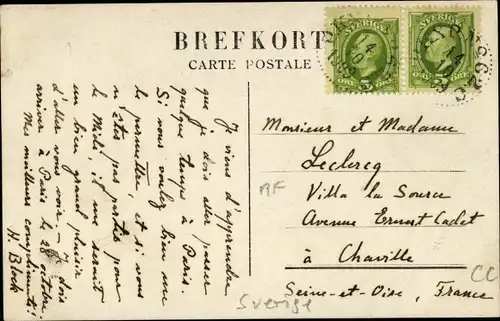 BREFKORT
CARTE POSTALE
SVERIGE
SVERIGE
5 ÖRE
5 ÖRE
14
14
Je viens d'apprendre
que je dois aller passer
quelque temps à Paris.
Si vous voulez bien me
le permettre, et si vous
n'êtes pas partis pour
le Midi, il me serait
un bien grand plaisir
d'aller vous voir. – Je dois
arriver à Paris le 28 octobre.
Mes meilleurs compliments!
H. Block
Monsieur et Madame
Leclercq
Villa la Source
Avenue Ernest Cadet
à Chaville
Seine-et-Oise, France
AF
CC
Sverige